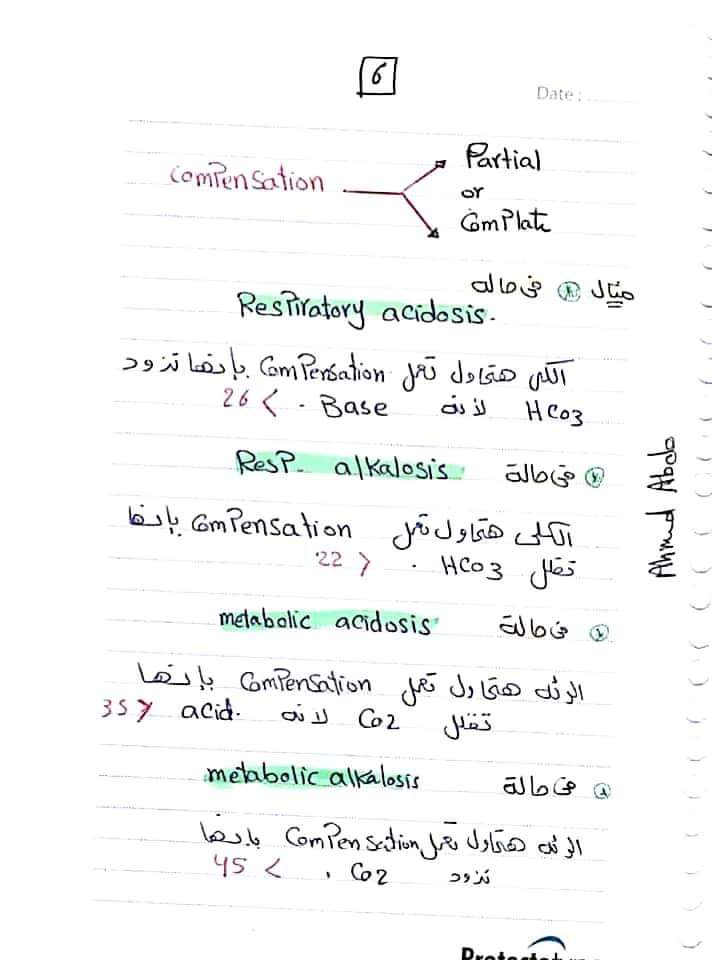 6
Date :
Partial
Compensation
or
Complate
مثال ① فى حالة
Respiratory acidosis.
الكلى هتحاول تعمل Compensation بإنها تزود
HCO3 لأنه Base . < 26
② فى حالة Resp. alkalosis
الكلى هتحاول تعمل Compensation بإنها
تقلل HCO3 . > 22
③ فى حالة metabolic acidosis
الرئه هتحاول تعمل Compensation بإنها
تقلل CO2 لانه acid. > 35
فى حالة metabolic alkalosis
الرئه هتحاول تعمل Compensation بإنها
تزود CO2 . < 45
Ahmed Abdo